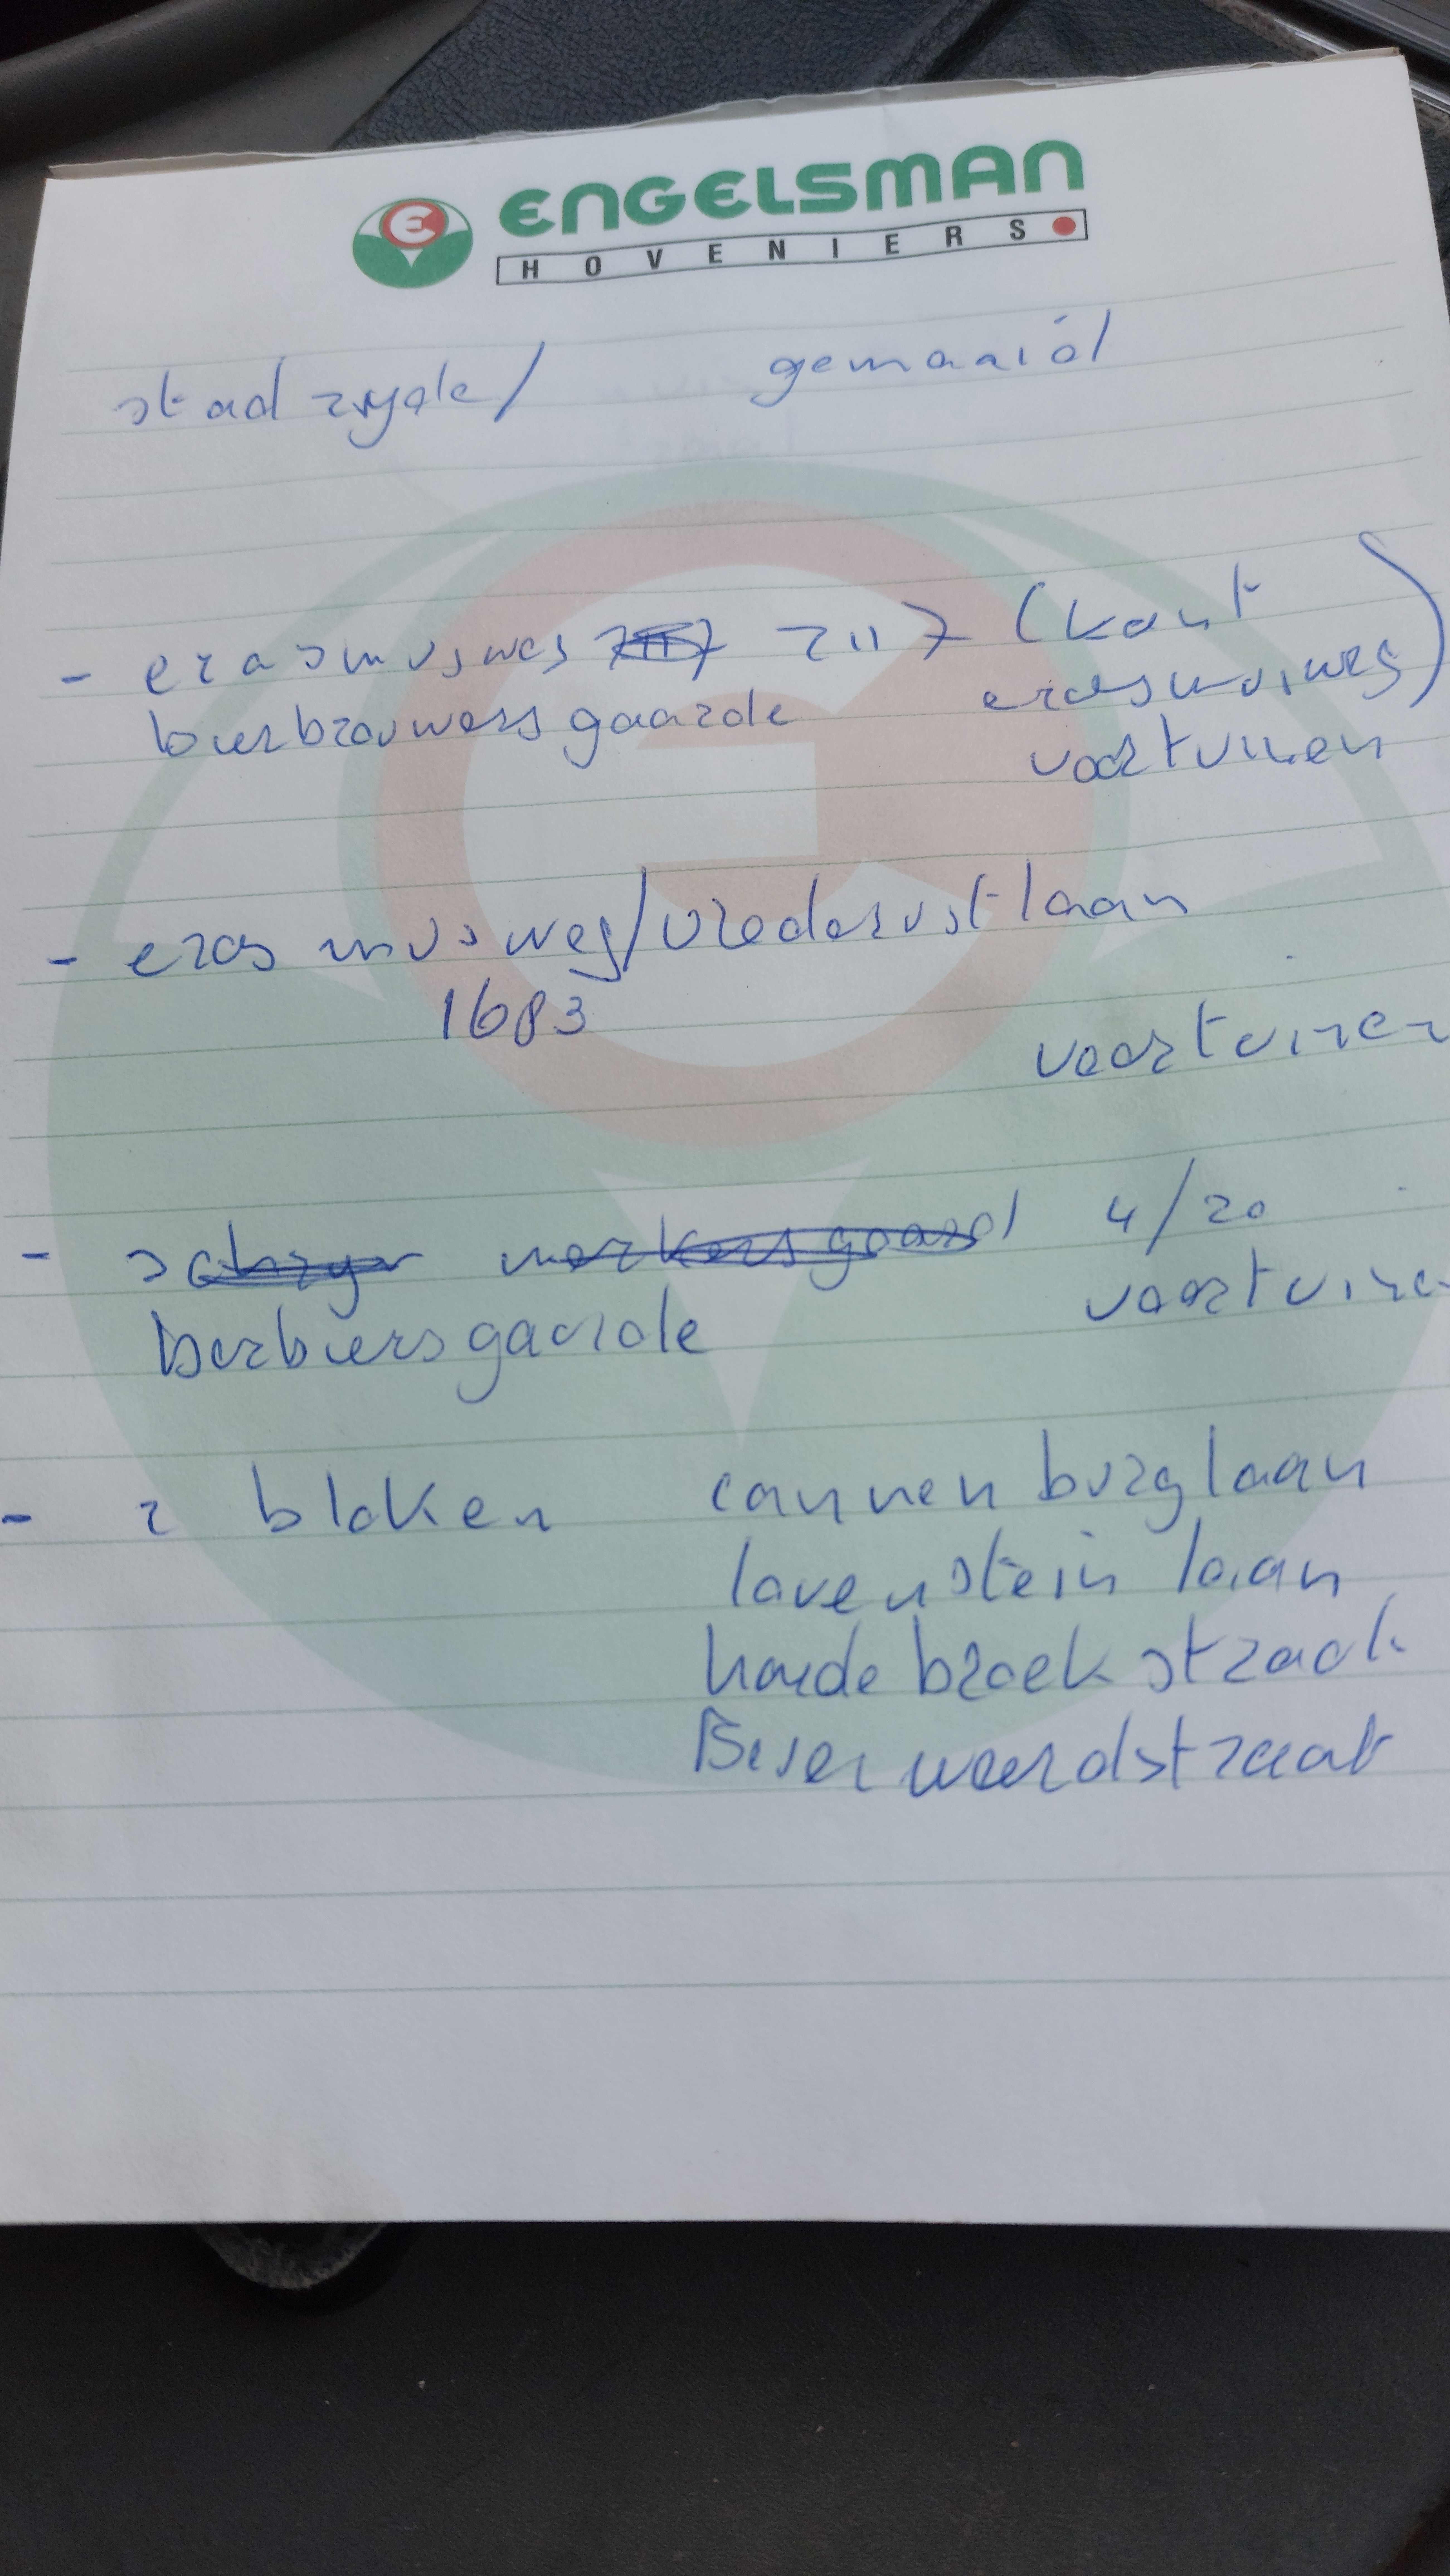 ENGELSMAN
HOVENIERS
stadzyde/ gemaaid
- erasmusweg 2117 (kant
bierbrouwersgaarde erasmusweg)
voortuinen
- erasmusweg/vrederustlaan
1683
voortuinen
- 4/20
Barbiersgaarde voortuinen
- 2 bloken cannenburglaan
lovensteinlaan
hardebroekstraat
Beverweerdstraat